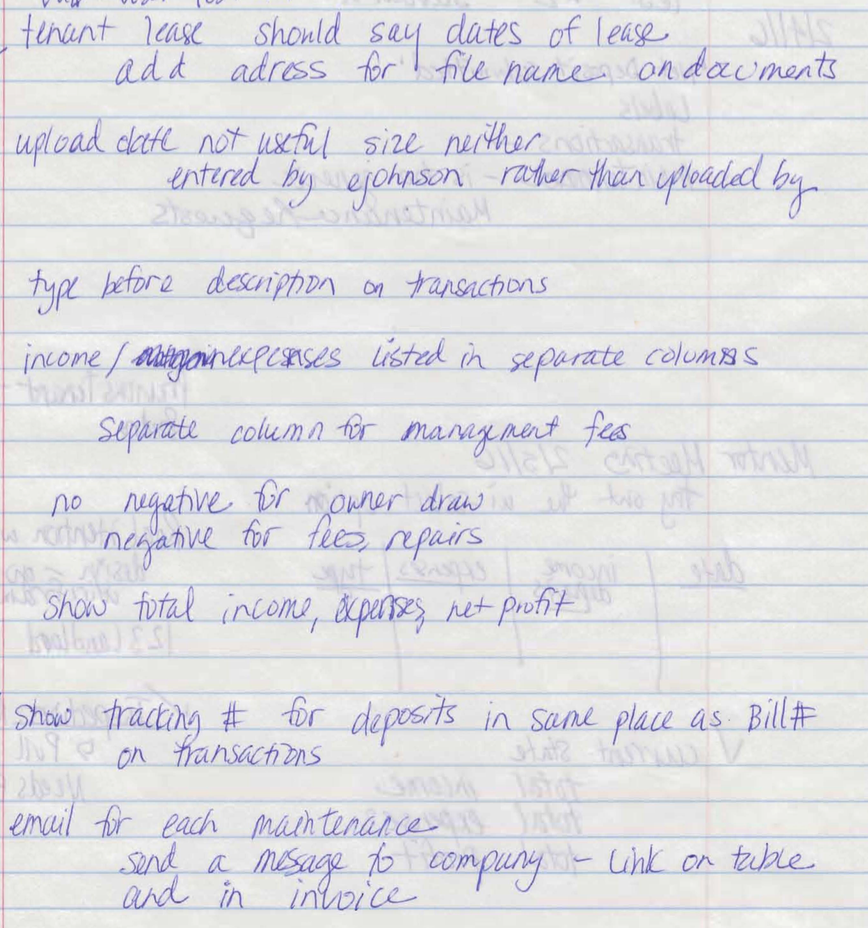 tenant lease should say dates of lease
add adress for file name on documents
upload date not useful size neither
entered by ejohnson - rather than uploaded by
type before description on transactions
income / expenses listed in separate columns
separate column for management fees
no negative for owner draw
negative for fees, repairs
show total income, expenses, net profit
show tracking # for deposits in same place as Bill#
on transactions
email for each maintenance
send a message to company - link on table
and in invoice